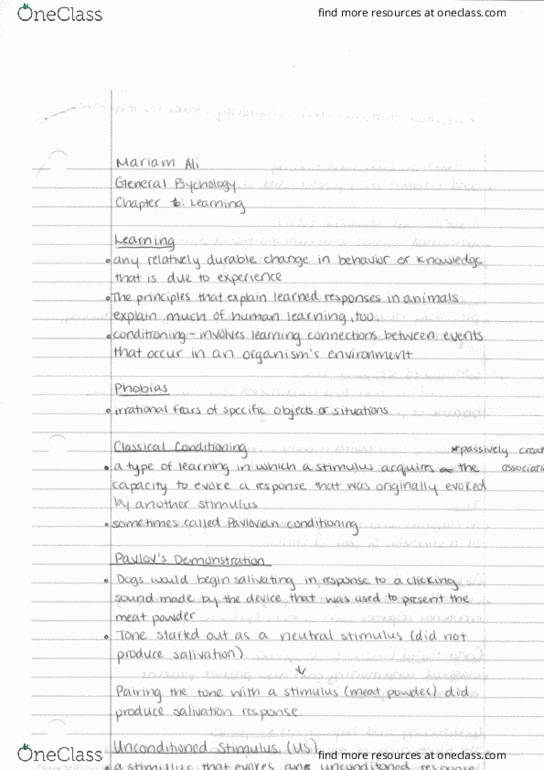 OneClass
find more resources at oneclass.com
Mariam Ali
General Psychology
Chapter 6: Learning
Learning
• any relatively durable change in behavior or knowledge
that is due to experience
• The principles that explain learned responses in animals
explain much of human learning, too.
• conditioning - involves learning connections between events
that occur in an organism's environment
Phobias
• irrational fears of specific objects or situations
Classical Conditioning *passively creat
• a type of learning in which a stimulus acquires the associati
capacity to evoke a response that was originally evoked
by another stimulus
• sometimes called Pavlovian conditioning
Pavlov's Demonstration
• Dogs would begin salivating in response to a clicking
sound made by the device that was used to present the
meat powder
• Tone started out as a neutral stimulus (did not
produce salivation)
↓
Pairing the tone with a stimulus (meat powder) did
produce salivation response.
Unconditioned Stimulus (US)
OneClass
find more resources at oneclass.com
• a stimulus that evokes an unconditioned response